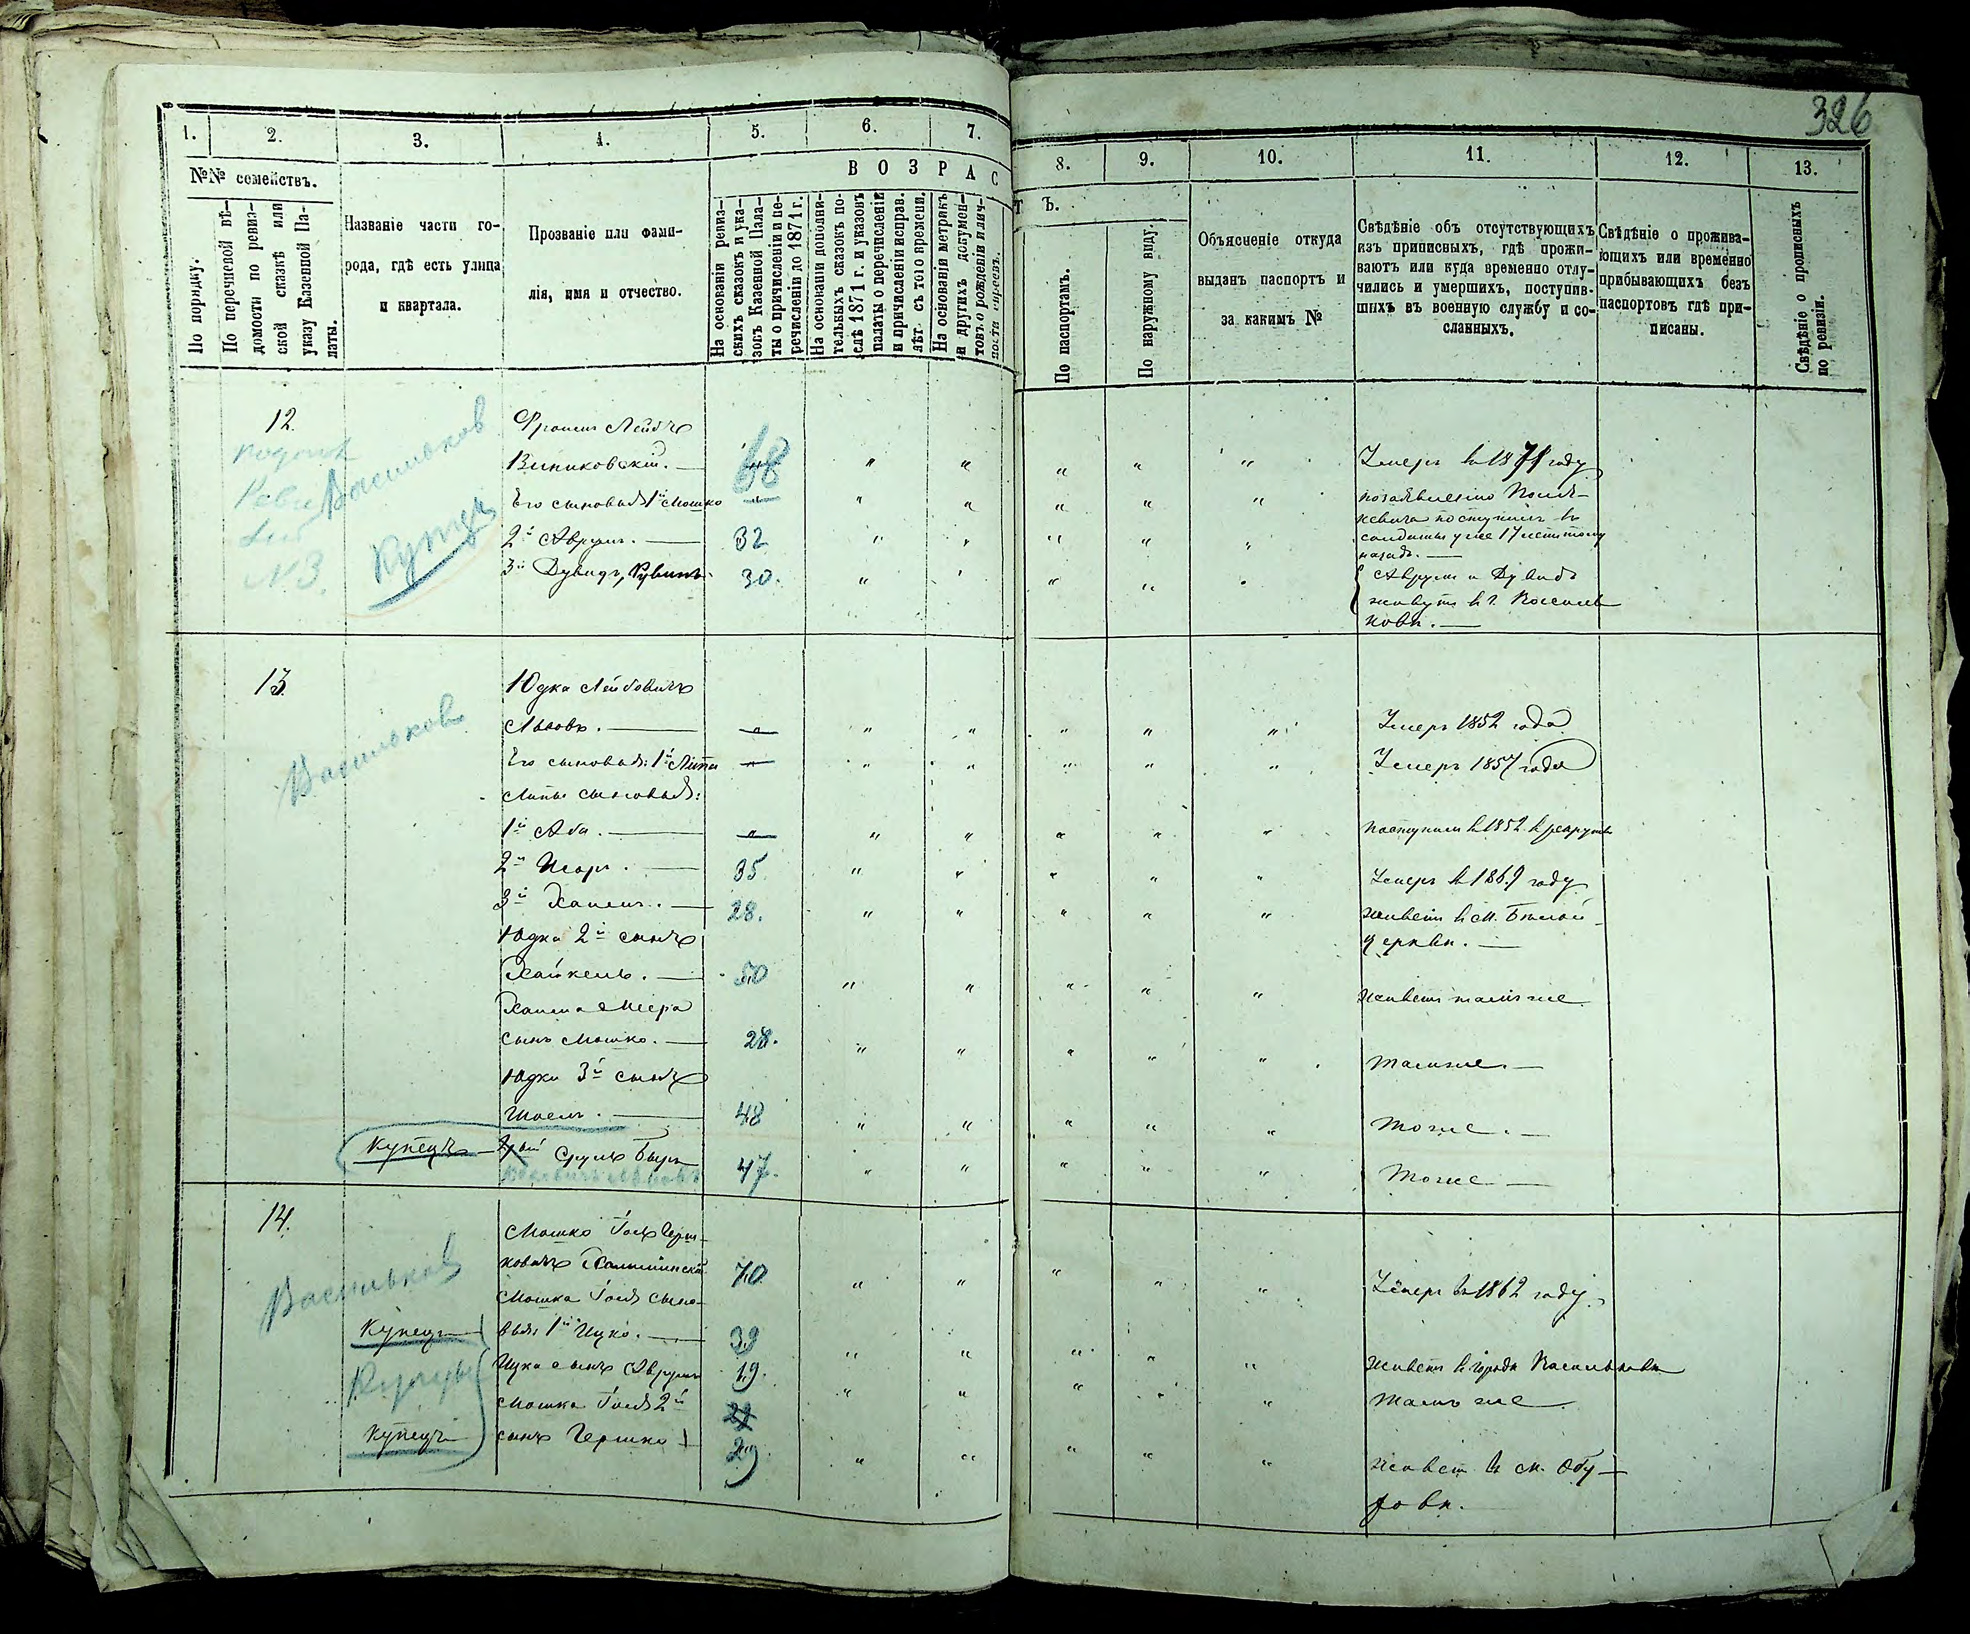 326
1.
2.
3.
4.
5.
6.
7.
8.
9.
10.
11.
12.
13.
№№ семействъ.
По порядку.
По перечневой вѣ-
домости по ревиз-
ской сказкѣ или
указу Казенной Па-
латы.
Названіе части го-
рода, гдѣ есть улица
и квартала.
Прозваніе или фами-
лія, имя и отчество.
ВОЗРАСТЪ.
На основаніи ревиз-
скихъ сказокъ и ука-
зовъ Казенной Пала-
ты о причисленіи и пе-
речисленіи до 1871 г.
На основаніи дополни-
тельныхъ сказокъ по-
слѣ 1871 г. и указовъ
палаты о перечисленіи
и причисленіи исправ.
лѣт. съ того времени.
На основаніи метрикъ
и другихъ докумен-
товъ о рожденіи и лич-
ности евреевъ.
По паспортамъ.
По наружному виду.
Объясненіе откуда
выданъ паспортъ и
за какимъ №
Свѣдѣніе объ отсутствующихъ
изъ приписныхъ, гдѣ прожи-
ваютъ или куда временно отлу-
чились и умершихъ, поступив-
шихъ въ военную службу и со-
сланныхъ.
Свѣдѣніе о прожива-
ющихъ или временно
прибывающихъ безъ
паспортовъ гдѣ при-
писаны.
Свѣдѣніе о прописныхъ
по ревизіи.
12.
Васильков
N 3.
Купец
Фроимъ Лейбъ
68
Умеръ въ 1871 году
Его сыновья 1й Мошко
поступилъ въ
солдаты уже 17
назадъ.
2й Аврумъ.
32
3й Дувидъ
30.
Аврумъ и Дувидъ
живутъ въ г. Василь
ковѣ.
13.
Васильков
Юдка Лейбовичъ
Львовъ.
Умеръ 1852 года
Его сыновья: 1й Липа
Умеръ 1857 года
Липы сыновья:
1й Аба.
поступилъ въ 1852 въ рекруты
2й
35.
Умеръ въ 1869 году
3й Хаимъ.
28.
живетъ въ м. Бѣлой
Церкви.
Юдки 2й сынъ
Хайкель.
50
живетъ тамъ же
сынъ Мошко.
28.
тамъ же.
Юдки 3й сынъ
48
тоже.
Купецъ
Сруль Беръ
47.
тоже
14.
Васильков
Мошко Гось Герш-
ковичъ
70
Умеръ въ 1862 году
Мошка Гося сыно-
Купецъ
вья: 1й Ицко.
39
живетъ въ городѣ Васильковѣ
Купцы
Ицка сынъ Аврумъ
19.
тамъ же
Мошка Гося 2й
Купецъ
сынъ Гершко
29
живетъ въ м. Обу
ховѣ.